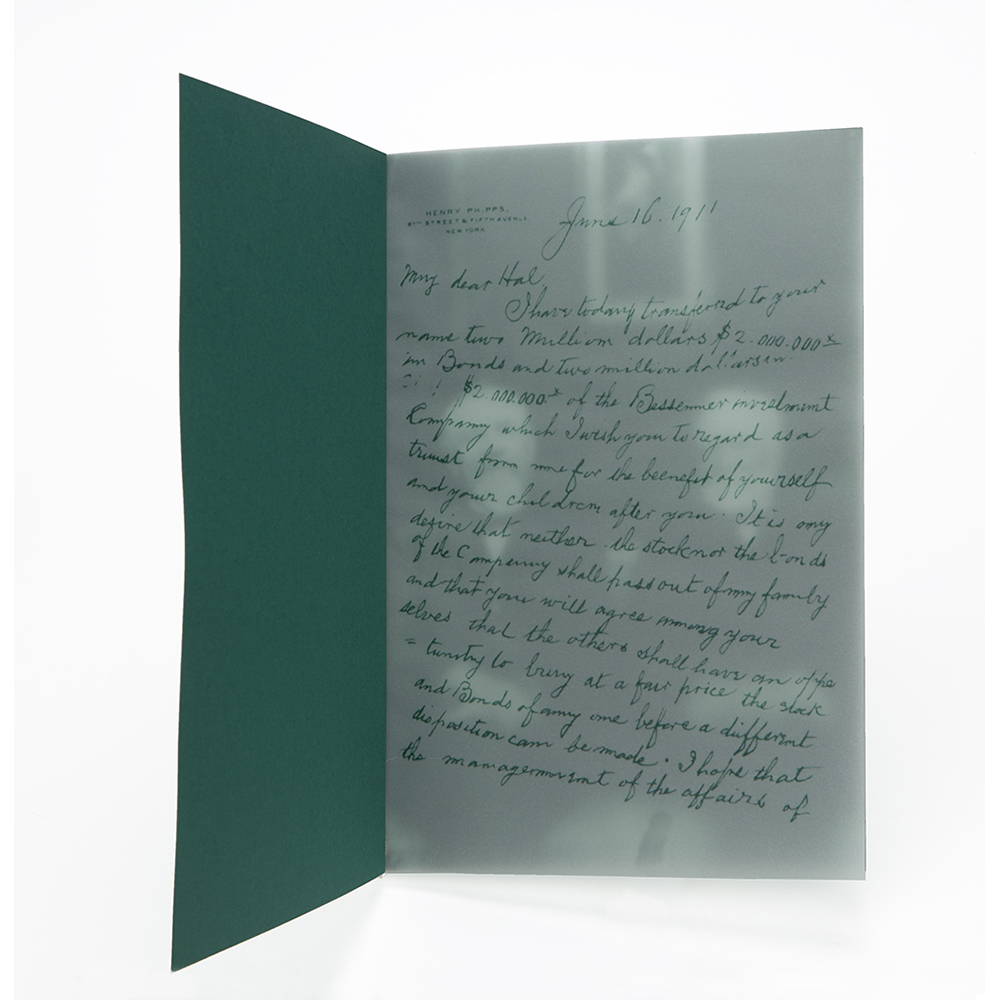 HENRY PHIPPS,
87TH STREET & FIFTH AVENUE
NEW YORK
June 16. 1911
My dear Hal,
I have today transferred to your
name two Million dollars $2.000.000 x
in Bonds and two million dollars in
$2.000.000 x of the Bessemer investment
Company which I wish you to regard as a
trust from me for the benefit of yourself
and your children after you. It is my
desire that neither the stock nor the bonds
of the Company shall pass out of my family
and that you will agree among your
selves that the others shall have an oppo
= tunity to buy at a fair price the stock
and Bonds of any one before a different
disposition can be made. I hope that
the management of the affairs of